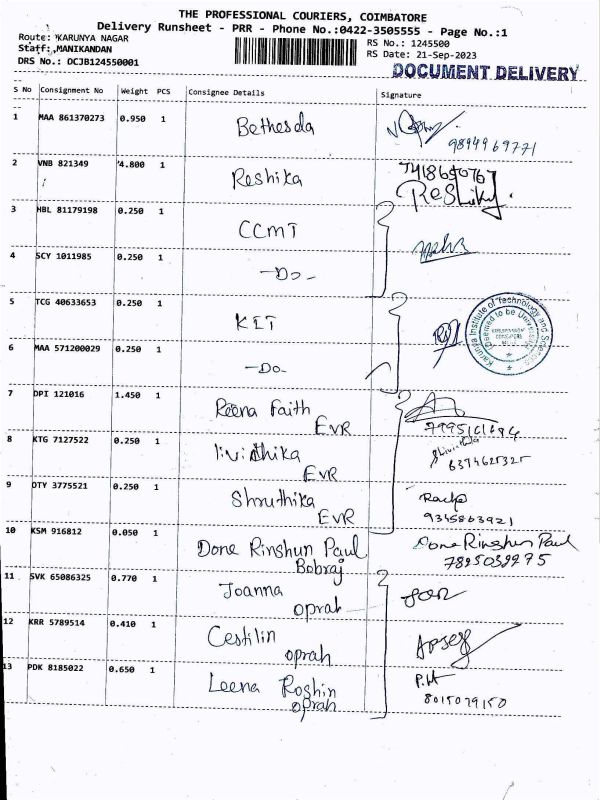 THE PROFESSIONAL COURIERS, COIMBATORE
Delivery Runsheet - PRR - Phone No.:0422-3505555 - Page No.:1
Route: KARUNYA NAGAR
RS No.: 1245500
Staff: MANIKANDAN
RS Date: 21-Sep-2023
DRS No.: OCJB124550001
DOCUMENT DELIVERY
S No Consignment No Weight PCS Consignee Details Signature
1 MAA 861370273 0.950 1 Bethesda
9894969771
2 VNB 821349 4.800 1 Reshika 7418650767
Reshika
3 HBL 81179198 0.250 1 CCMT
4 SCY 1011985 0.250 1 -Do-
5 TCG 40633653 0.250 1 KIT
Karunya Institute of Technology and Sciences
Deemed to be University
6 MAA 571200029 0.250 1 -Do-
7 DPI 121016 1.450 1 Reena Faith
EVR
8 KTG 7127522 0.250 1
EVR
9 DTY 3775521 0.250 1 Shruthika
EVR 9345863921
10 KSM 916812 0.050 1 Done Rinshun Paul Done Rinshun Paul
Bobraj 7895039275
11 SVK 65086325 0.770 1 Joanna
oprah
12 KRR 5789514 0.410 1 Cestilin
oprah
13 PDK 8185022 0.650 1 Leena Roshin P.H
oprah 8015079150